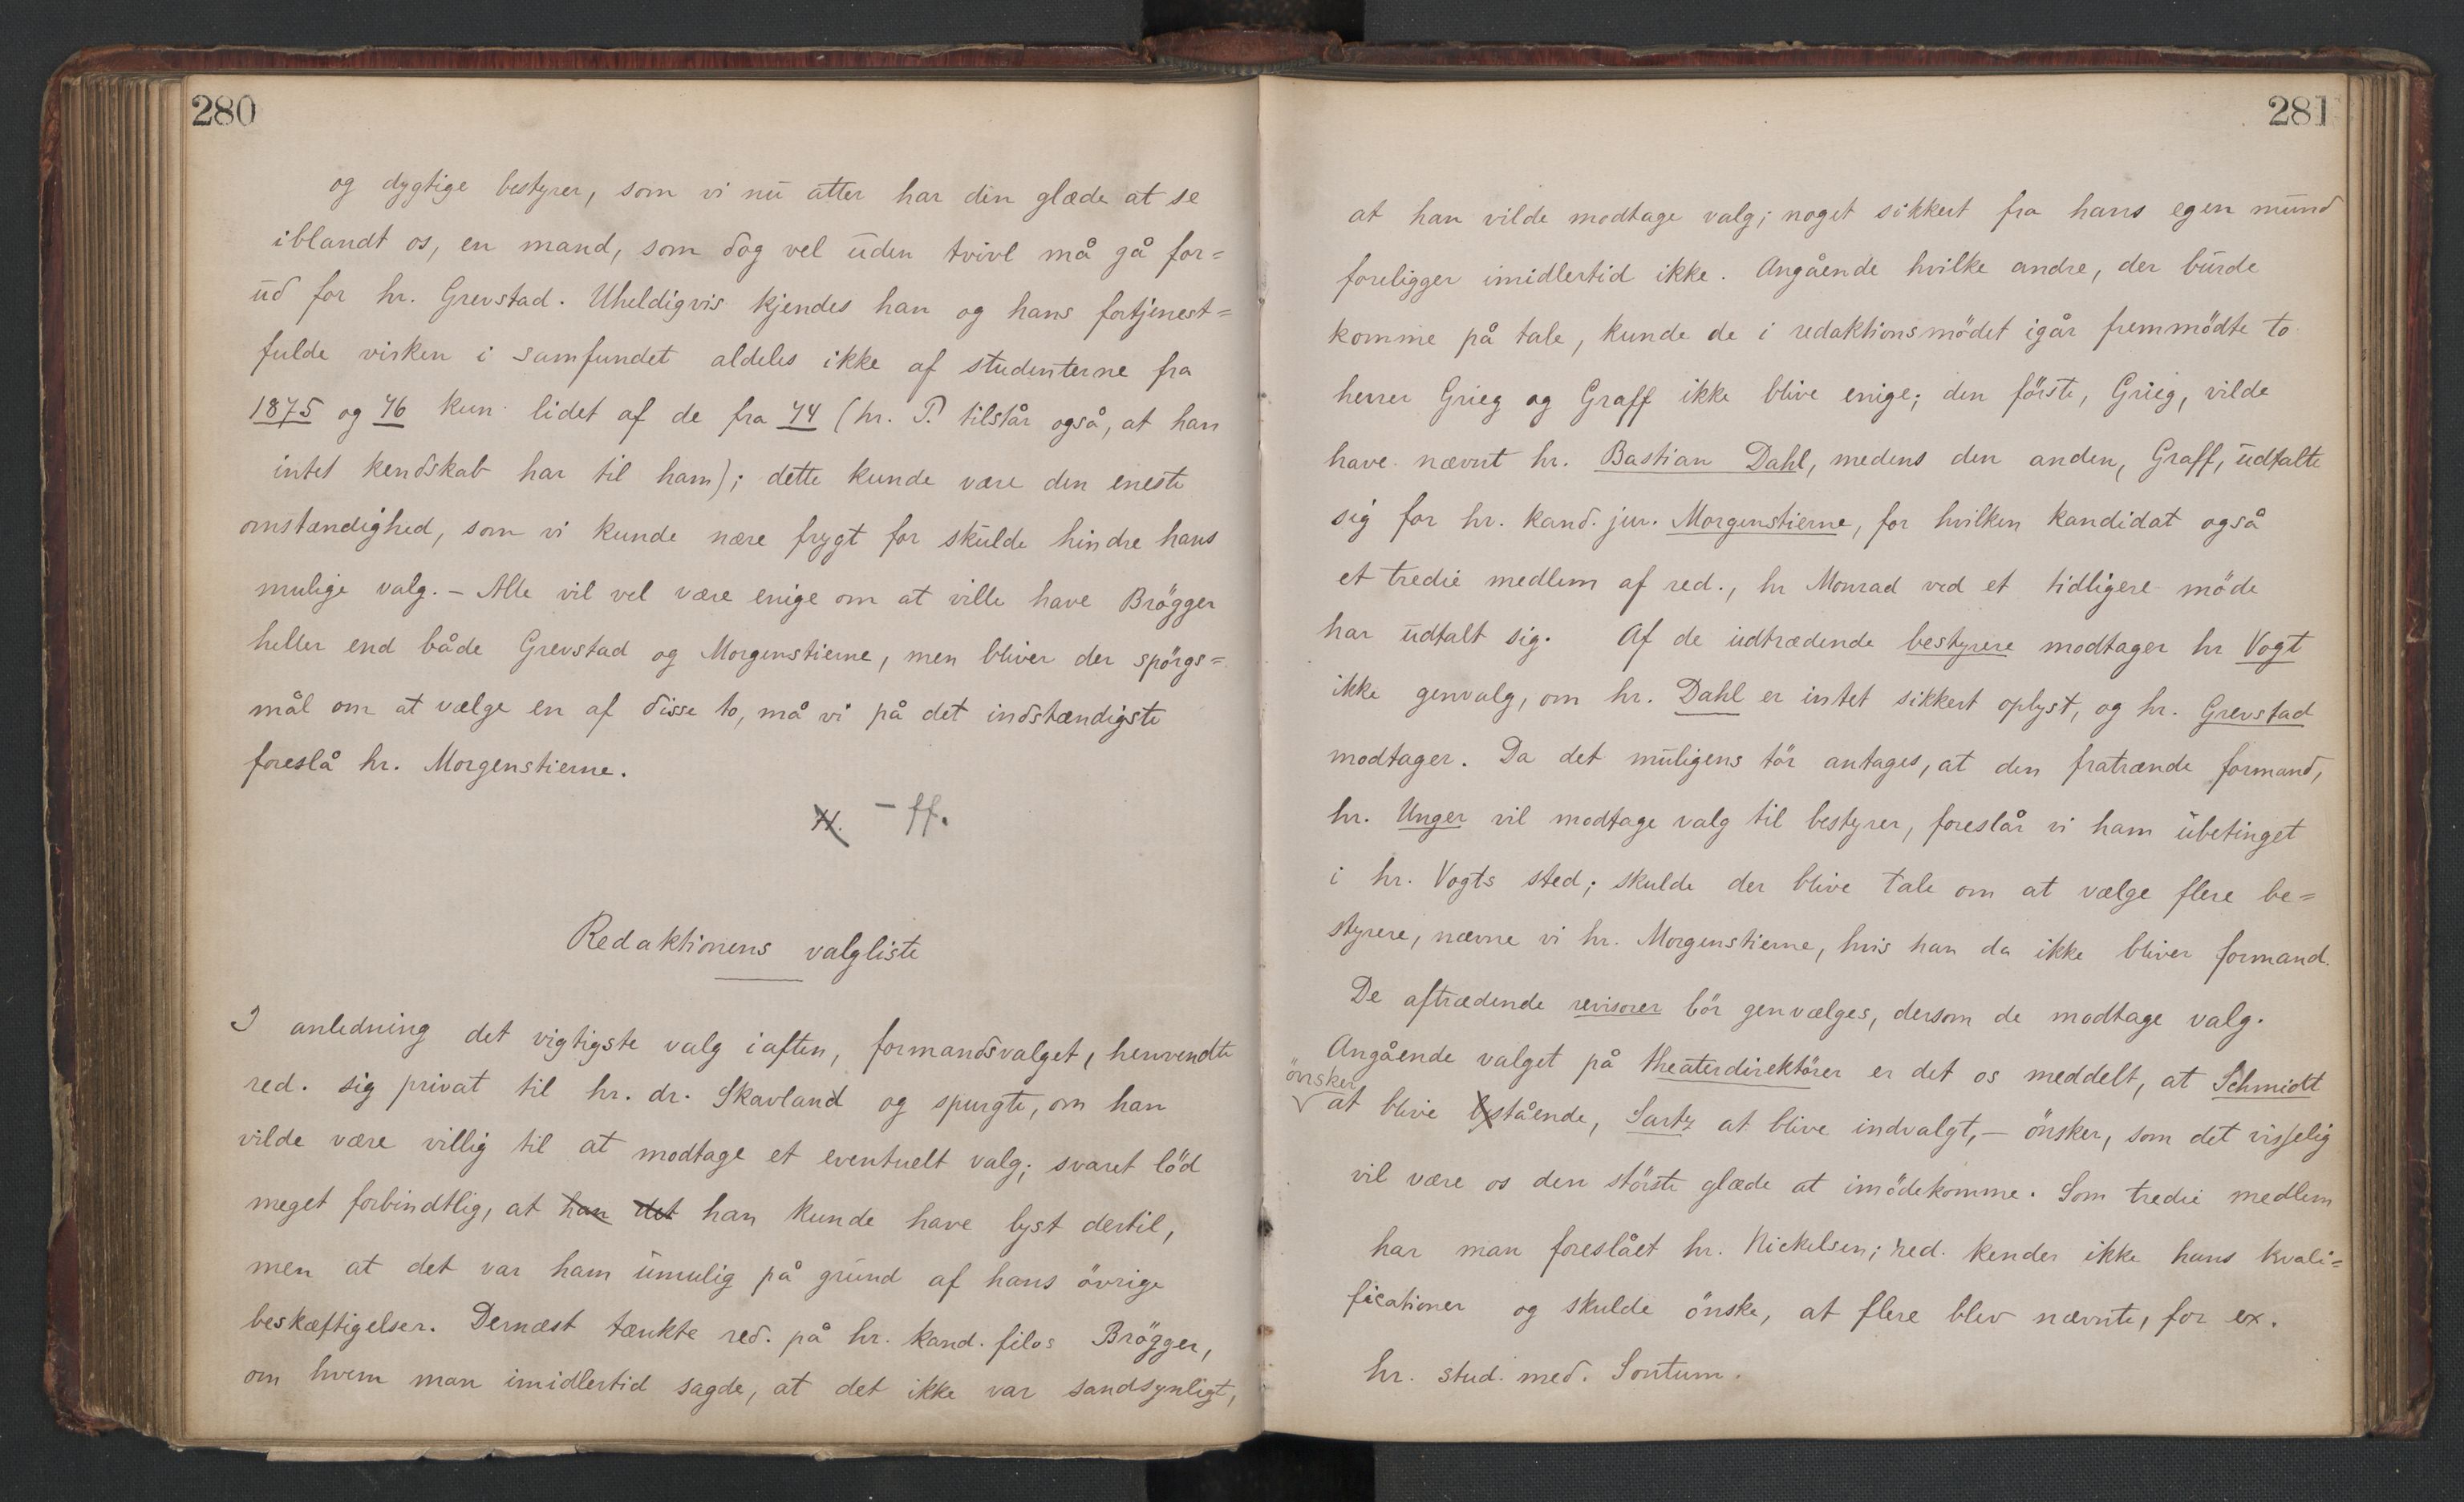 280
og dygtige bestyrer, som vi nu atter har den glæde at se
iblandt os, en mand, som dog vel uden tvivl må gå for=
ud for hr. Grevstad. Uheldigvis kjendes han og hans fortjenest=
fulde virken i samfundet aldeles ikke af studenterne fra
1875 og 76 kun lidet af de fra 74 (hr. P. tilstår også, at han
intet kendskab har til ham); dette kunde være den eneste
omstændighed, som vi kunde nære frygt for skulde hindre hans
mulige valg. – Alle vil vel være enige om at ville have Brögger
heller end både Grevstad og Morgenstierne, men bliver der spörgs=
mål om at vælge en af disse to, må vi på det indstændigste
foreslå hr. Morgenstierne.
– ff.
Redaktionens valgliste
I anledning det vigtigste valg iaften, formandsvalget, henvendte
red. sig privat til hr. dr. Skavland og spurgte, om han
vilde være villig til at modtage et eventuelt valg; svaret löd
meget forbindtlig, at han det han kunde have lyst dertil,
men at det var ham umulig på grund af hans övrige
beskæftigelser. Dernæst tænkte red. på hr. kand. filos Brögger,
om hvem man imidlertid sagde, at det ikke var sandsynligt,
281
at han vilde modtage valg; noget sikkert fra hans egen mund
foreligger imidlertid ikke. Angående hvilke andre, der burde
komme på tale, kunde de i redaktionsmödet igår fremmödte to
herrer Grieg og Graff ikke blive enige; den förste, Grieg, vilde
have nævnt hr. Bastian Dahl, medens den anden, Graff, udtalte
sig for hr. kand. jur. Morgenstierne, for hvilken kandidat også
et tredie medlem af red., hr Monrad ved et tidligere möde
har udtalt sig. Af de udtrædende bestyrere modtager hr Vogt
ikke genvalg, om hr. Dahl er intet sikkert oplyst, og hr. Grevstad
modtager. Da det muligens tör antages, at den fratrænde formand,
hr. Unger vil modtage valg til bestyrer, foreslår vi ham ubetinget
i hr. Vogts sted; skulde der blive tale om at vælge flere be=
styrere, nævne vi hr. Morgenstierne, hvis han da ikke bliver formand.
De aftrædende revisorer bör genvælges, dersom de modtage valg.
Angående valget på theaterdirektörer er det os meddelt, at Schmidt
önsker
at blive stående, Sartz at blive indvalgt, – önsker, som det visselig
vil være os den störste glæde at imödekomme. Som tredie medlem
har man foreslået hr. Nickelsen; red. kender ikke hans kvali=
ficationer og skulde önske, at flere blev nævnte, for ex.
hr. stud. med. Sontum.